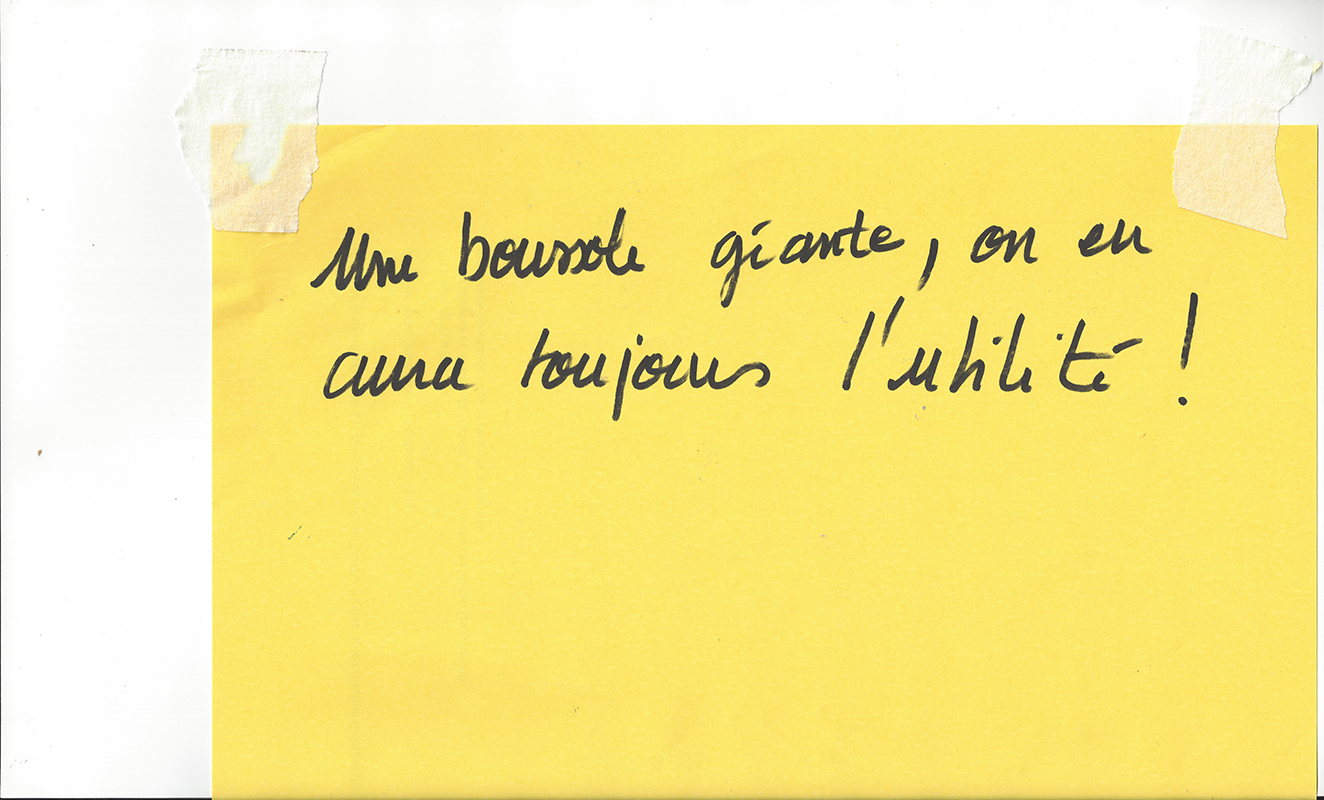 Une boussole géante, on en
aura toujours l'utilité !